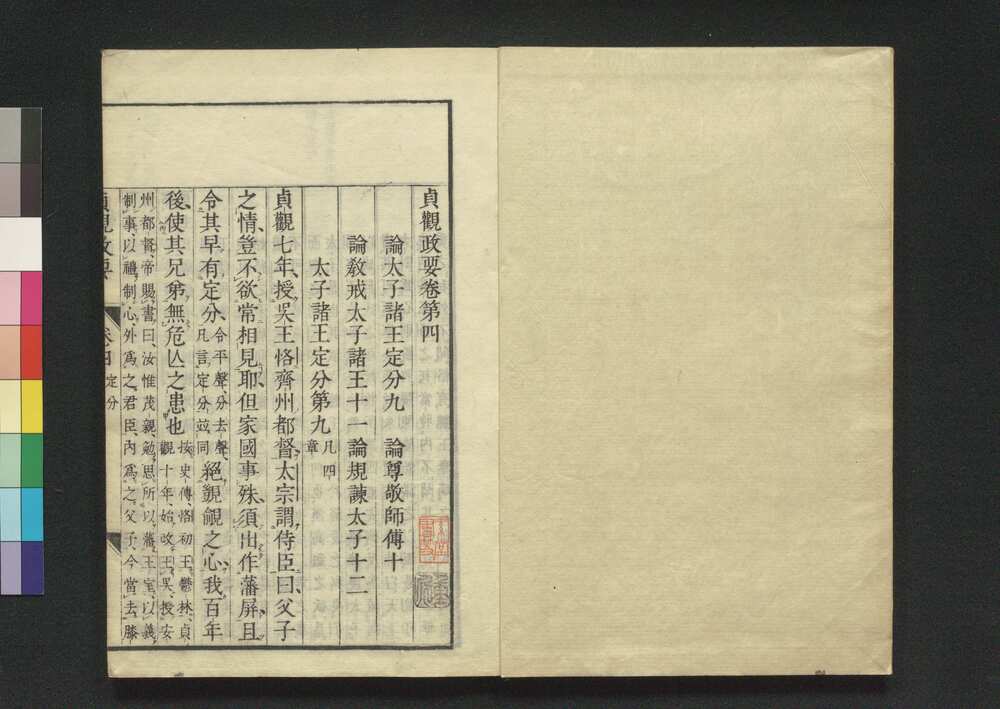 貞觀政要卷第四
論太子諸王定分九　論尊敬師傅十
論敎戒太子諸王十一論規諫太子十二
太子諸王定分第九凡四章
貞觀七年、授吳王恪齊州都督、太宗謂侍臣曰、父子
之情、豈不欲常相見耶、但家國事殊、須出作藩屏、且
令其早有定分、令平聲、分去聲、凡言定分竝同絕覬覦之心、我百年
後、使其兄弟無危亾之患也按史傳、恪初王鬱林、貞觀十年、始改王吳、授安
州都督、帝賜書曰、汝惟茂親、勉思所以藩王室、以義
制事、以禮制心、外爲之君臣、內爲之父子、今當去膝
貞觀政要　卷四　定分